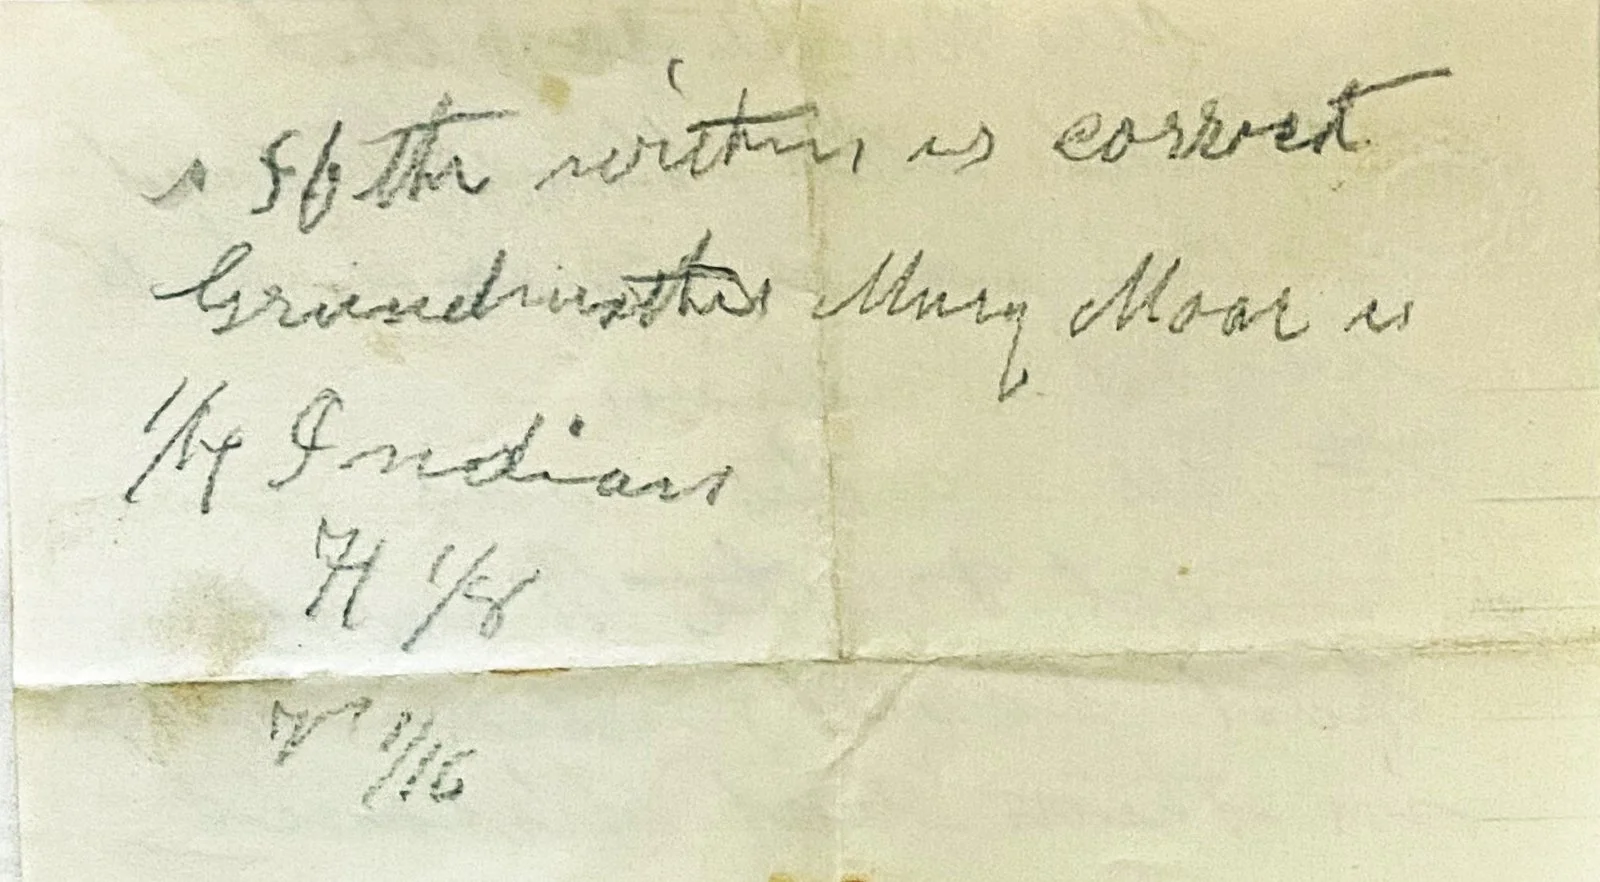 If the within is correct
Grandmother Mary Moar is
1/4 Indian
H 1/8
V 1/16